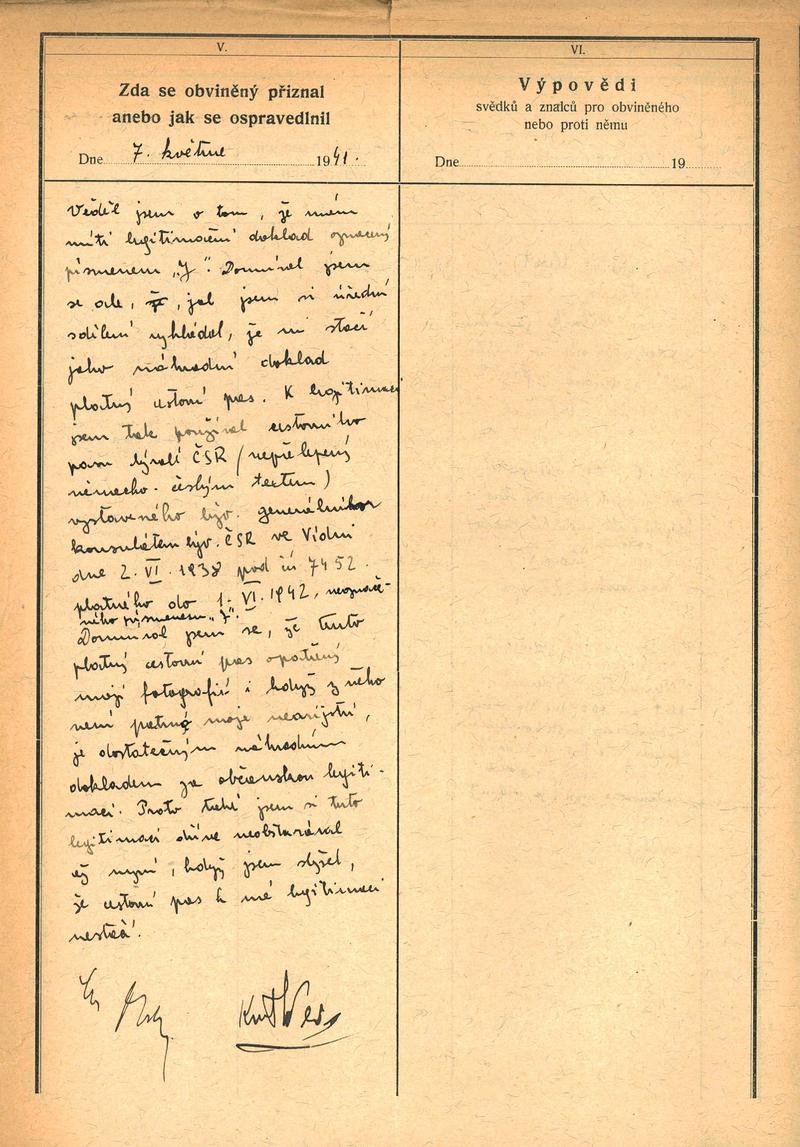 V.
Zda se obviněný přiznal
anebo jak se ospravedlnil
Dne 7. května 1941.
Věděl jsem o tom, že mám
míti legitimační doklad označený
písmenem „J". Domníval jsem
se ale, že, jak jsem si úřední
sdělení vykládal, že mi stačí
jako náhradní doklad
platný cestovní pas. K legitimaci
jsem tak používal cestovního
pasu bývalé ČSR (nepřelepený
německo-českým textem)
vystaveného býv. generálním
konsulátem býv. ČSR ve Vídni
dne 2. VI. 1938 pod čís 7452.
platného do 1. VI. 1942, neoznače-
ného písmenem „J".
Domníval jsem se, že tento
platný cestovní pas opatřený
mojí fotografií i když z něho
není patrno moje nearijství,
je dostatečným náhradním
dokladem za občanskou legiti-
maci. Proto také jsem si tuto
legitimaci dříve neobstarával
až nyní, když jsem slyšel,
že cestovní pas k mé legitimaci
nestačí.
Kurt Weiss
VI.
Výpovědi
svědků a znalců pro obviněného
nebo proti němu
Dne 19